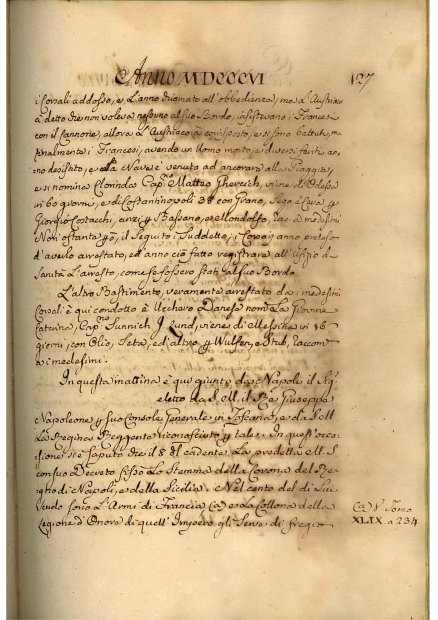 Anno MDCCCVI 127
i Corsali addosso, e L'anno chiamato all'obbedienza, ma L'Austriaco
a detto che non voleva nessuno al suo Bordo, insistevano i Francesi
con il Cannone, allora L'Austriaco à corrisposto, e si sono battuti, ma
finalmente i Francesi, avendo un Uomo morto, e diversi feriti anno
desistito, e la Nave è venuto ad ancorare alla Spiaggia,
e si nomina Clorinda Cap.no Matteo viene di Odessa
in 60 giorni, e di Costantinopoli 38 con Grano, Sego, a Cera p
Giorgio Costacchi, anzi p Bassano, e Mondolfo, Rac. a medesimi
Non ostante q.o, il seguito suddetto, i Corsali anno preteso
d'averlo arrestato, ed anno ciò fatto registrare all'Ufizio di
Sanità L'arresto, come se fossero stati al suo Bordo.
L'altro Bastimento, veramente arrestato da i medesimi
Corsali è qui condotto è Ucchero Danese nom.to La Giovine
Catarina, Cap.no Junnich J. Lund, viene di Messina in 16
giorni, con Olio, Seta, ed altro p Wulfen, e Stub, Raccom.
a i medesimi.
In questa mattina è qui giunto da Napole il
eletto da S. M. il Re Giuseppe
Napoleone p suo Console Generale in Toscana, e da S. M.
La Regina Reggente riconosciuto p tale. In quest'occa-
sione si è saputo che il 8 del cadente, La predetta M. S.
con suo Decreto fissò Lo Stemma della Corona del Re-
gno di Napoli, e della Sicilia. Nel cento del di Lui
Scudo sono L'Armi di Francia (a) e La Collona della
Legione d'Onore di quell'Impero gli serve di fregio
(a) V. Tomo
XLIX a 234